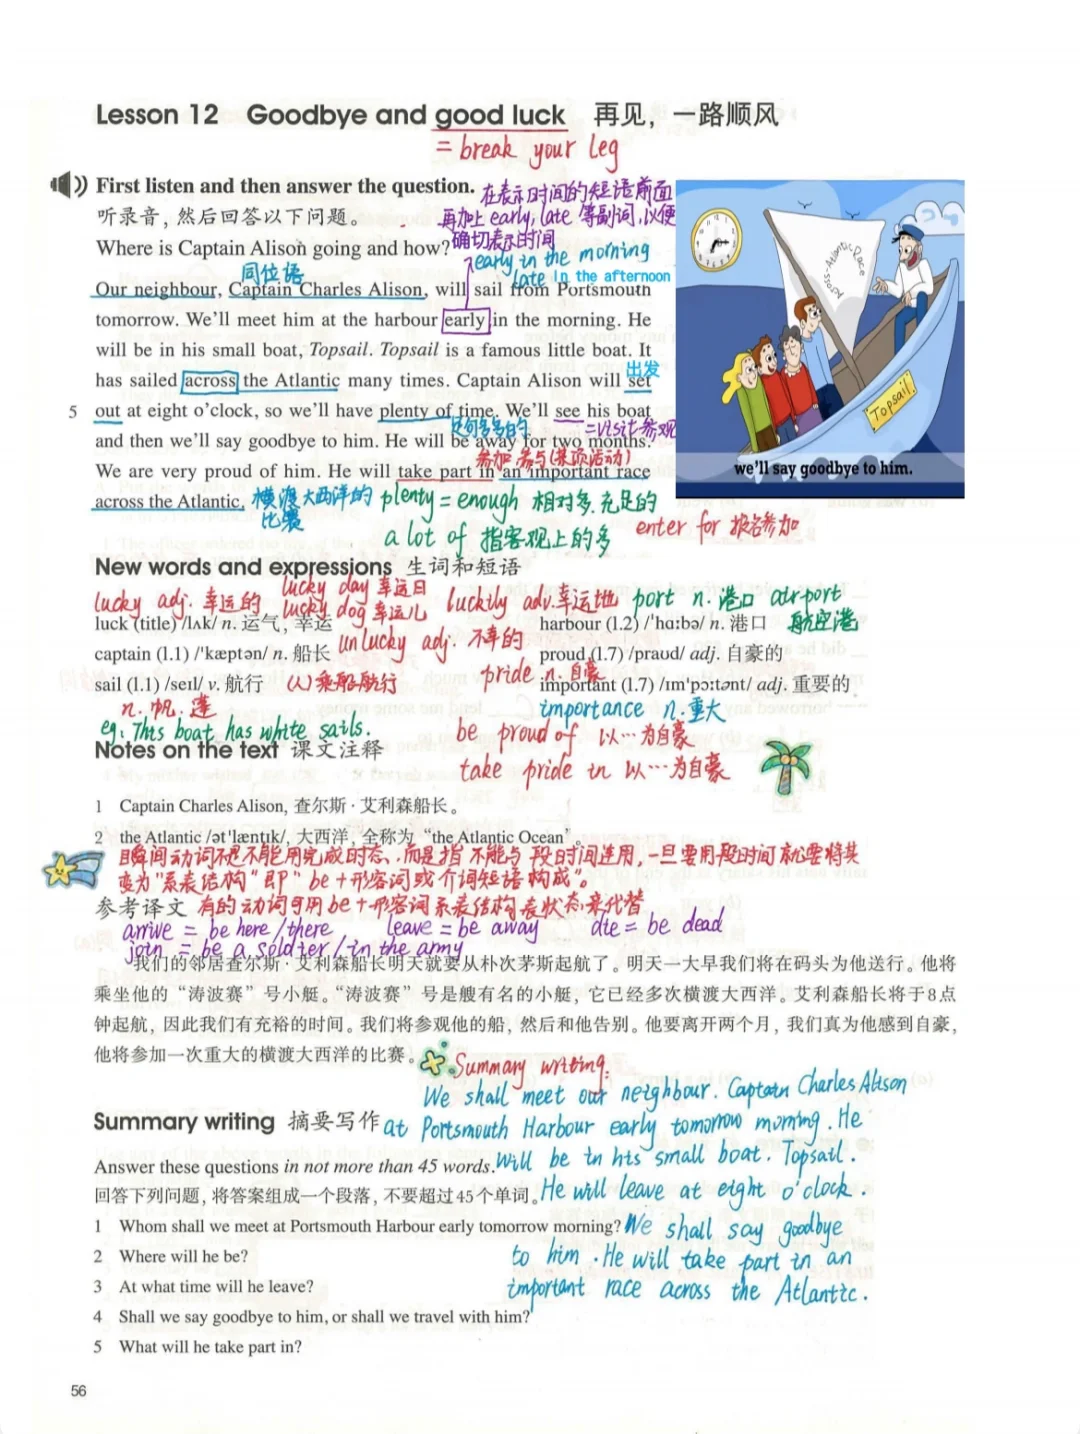 Lesson 12 Goodbye and good luck 再见，一路顺风
= break your leg
First listen and then answer the question.
听录音，然后回答以下问题。
Where is Captain Alison going and how?
在表示时间的短语前面
再加上 early, late 等副词，以便
确切表示时间
early in the morning
late In the afternoon
同位语
Our neighbour, Captain Charles Alison, will sail from Portsmouth
tomorrow. We'll meet him at the harbour early in the morning. He
will be in his small boat, Topsail. Topsail is a famous little boat. It
has sailed across the Atlantic many times. Captain Alison will set
出发
5 out at eight o'clock, so we'll have plenty of time. We'll see his boat
=visit参观
and then we'll say goodbye to him. He will be away for two months.
参加 参与(某项活动)
We are very proud of him. He will take part in an important race
across the Atlantic.
横渡大西洋的
比赛
plenty = enough 相对多.充足的
a lot of 指客观上的多
enter for 报名参加
Across-Atlantic Race
Topsail
we'll say goodbye to him.
New words and expressions 生词和短语
lucky adj. 幸运的
lucky day 幸运日
lucky dog 幸运儿
luckily adv.幸运地
port n. 港口 airport
航空港
luck (title) /lʌk/ n. 运气，幸运
unlucky adj. 不幸的
captain (l.1) /'kæptən/ n. 船长
sail (l.1) /seɪl/ v. 航行
(人)乘船航行
n. 帆. 蓬
eg: This boat has white sails.
harbour (l.2) /'hɑːbə/ n. 港口
proud (l.7) /praʊd/ adj. 自豪的
pride n. 自豪
important (l.7) /ɪm'pɔːtənt/ adj. 重要的
importance n. 重大
be proud of 以…为自豪
take pride in 以…为自豪
Notes on the text 课文注释
1 Captain Charles Alison, 查尔斯·艾利森船长。
2 the Atlantic /ət'læntɪk/, 大西洋, 全称为 “the Atlantic Ocean”。
瞬间动词不是不能用完成时态.而是指 不能与 段时间连用,一旦要用段时间就要将其
变为"系表结构"即"be+形容词或介词短语构成"。
参考译文
有的动词可用be+形容词系表结构表状态来代替
arrive = be here/there leave = be away die = be dead
join = be a soldier/in the army
我们的邻居查尔斯·艾利森船长明天就要从朴次茅斯起航了。明天一大早我们将在码头为他送行。他将
乘坐他的“涛波赛”号小艇。“涛波赛”号是艘有名的小艇，它已经多次横渡大西洋。艾利森船长将于8点
钟起航，因此我们有充裕的时间。我们将参观他的船，然后和他告别。他要离开两个月，我们真为他感到自豪，
他将参加一次重大的横渡大西洋的比赛。
Summary writing:
We shall meet our neighbour. Captain Charles Alison
at Portsmouth Harbour early tomorrow morning. He
will be in his small boat. Topsail.
He will leave at eight o'clock.
We shall say goodbye
to him. He will take part in an
important race across the Atlantic.
Summary writing 摘要写作
Answer these questions in not more than 45 words.
回答下列问题，将答案组成一个段落，不要超过45个单词。
1 Whom shall we meet at Portsmouth Harbour early tomorrow morning?
2 Where will he be?
3 At what time will he leave?
4 Shall we say goodbye to him, or shall we travel with him?
5 What will he take part in?
56